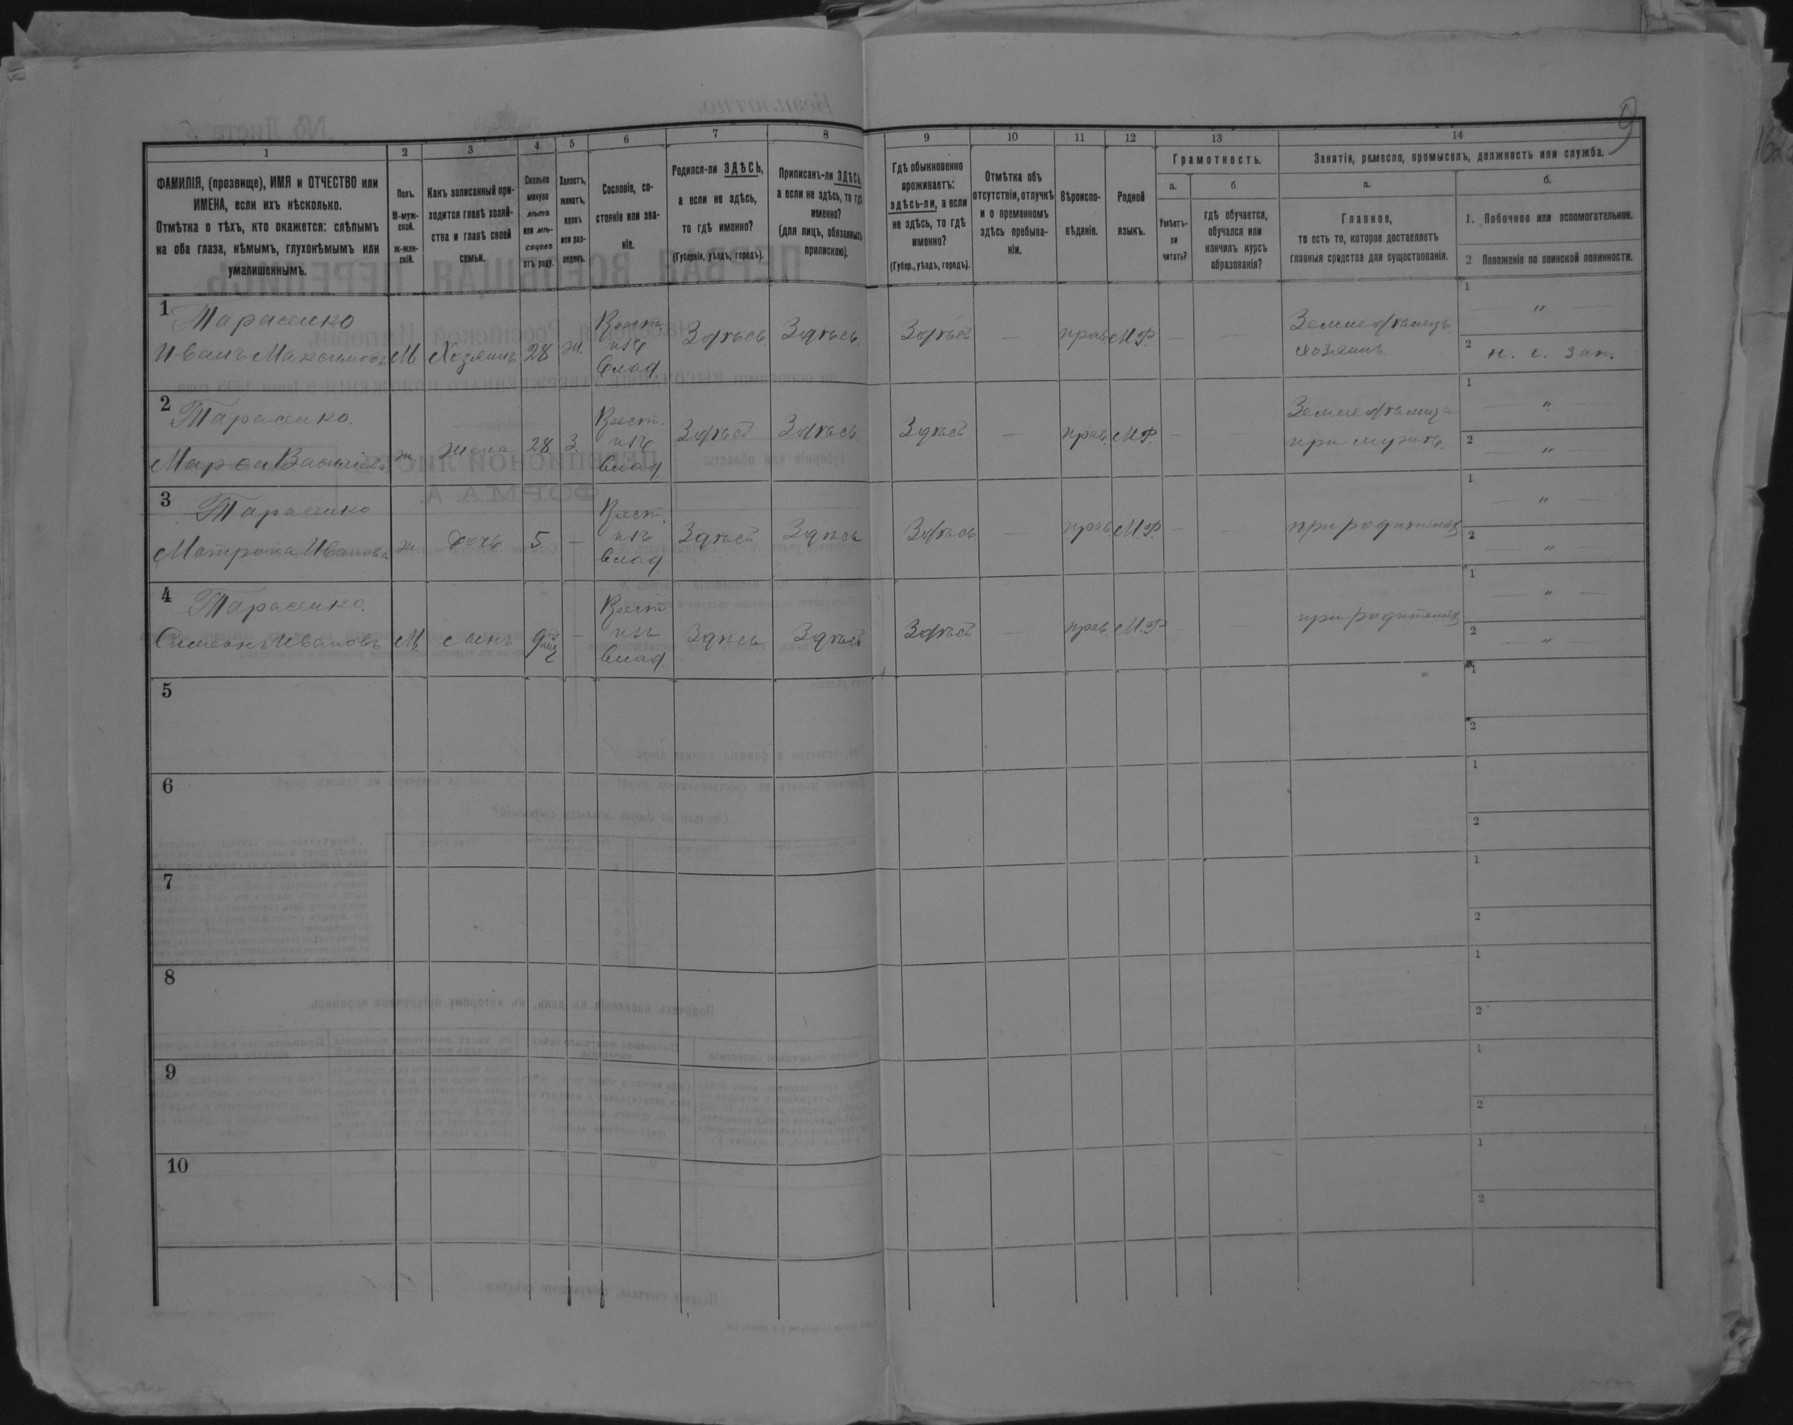 9
1 2 3 4 5 6 7 8 9 10 11 12 13 14
ФАМИЛІЯ, (прозвище), ИМЯ и ОТЧЕСТВО или ИМЕНА, если ихъ нѣсколько.
Отмѣтка о тѣхъ, кто окажется: слѣпымъ на оба глаза, нѣмымъ, глухонѣмымъ или умалишеннымъ.
Полъ.
М-мужской.
Ж-женскій.
Какъ записанный приходится главѣ хозяйства и главѣ своей семьи.
Сколько минуло лѣтъ или мѣсяцевъ отъ роду.
Холостъ, женатъ, вдовъ или разведенъ.
Сословіе, состояніе или званіе.
Родился-ли ЗДѢСЬ, а если не здѣсь, то гдѣ именно?
(Губернія, уѣздъ, городъ).
Приписанъ-ли ЗДѢСЬ, а если не здѣсь, то гдѣ именно?
(для лицъ, обязанныхъ припискою).
Гдѣ обыкновенно проживаетъ: здѣсь-ли, а если не здѣсь, то гдѣ именно?
(Губер., уѣздъ, городъ).
Отмѣтка объ отсутствіи, отлучкѣ и о временномъ здѣсь пребываніи.
Вѣроисповѣданіе.
Родной языкъ.
Грамотность.
а.
Умѣетъ-ли читать?
б
гдѣ обучается, обучался или кончилъ курсъ образованія?
Занятіе, ремесло, промыселъ, должность или служба.
а.
Главное,
то есть то, которое доставляетъ главныя средства для существованія.
б.
1. Побочное или вспомогательное.
2 Положеніе по воинской повинности.
1 Тарасенко
Иванъ Максимовъ М Хозяинъ 28 ж. Крест. влад. Здѣсь Здѣсь Здѣсь — прав. М.Р. — — Земледѣлецъ хозяинъ
1 — " —
2 н. г. зап.
2 Тарасенко.
Марѳа ж жена 28 З Крест. влад. Здѣсь Здѣсь Здѣсь — прав. М.Р. — — при мужѣ.
1 — " —
2 — " —
3 Тарасенко
Матрона Иванова ж дочь 5 — Крест. влад. Здѣсь Здѣсь Здѣсь — прав. М.Р. — — при родителяхъ
1 — " —
2 — " —
4 Тарасенко.
Симеонъ Ивановъ М сынъ 9 — Крест. влад. Здѣсь Здѣсь Здѣсь — прав. М.Р. — — при родителяхъ
1 — " —
2 — " —
5
1
2
6
1
2
7
1
2
8
1
2
9
1
2
10
1
2